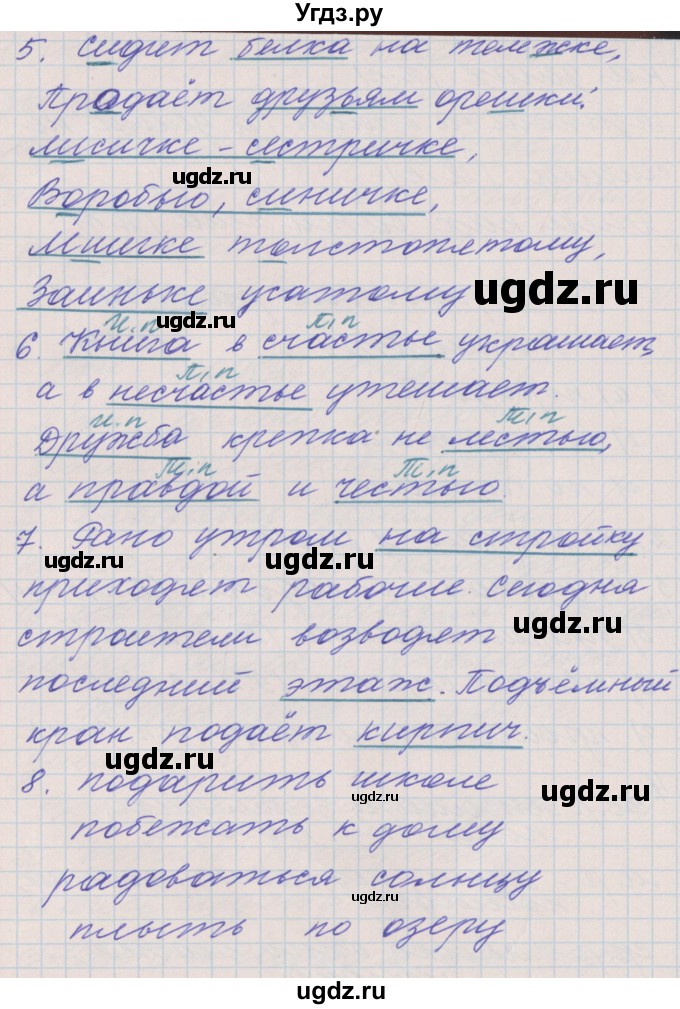 Угдз.ру
5. Сидит белка на тележке,
Продаёт друзьям орешки:
лисичке - сестричке,
ugdz.ru
Воробью, синичке,
Мишке толстопятому,
ugdz.ru
Заиньке усатому
ugdz.ru
И.п П.п
6. Книга в счастье украшает,
П.п
а в несчастье утешает.
И.п Т.п
Дружба крепка не лестью,
Т.п Т.п
а правдой и честью.
7. Рано утром на стройку
ugdz.ru ugdz.ru
приходят рабочие. Сегодня
ugdz.ru
строители возводят
последний этаж. Подъёмный
кран подаёт кирпич.
ugdz.ru
8. подарить школе
ugdz.ru ugdz.ru
побежать к дому
радоваться солнцу
ugdz.ru
плыть по озеру
ugdz.ru